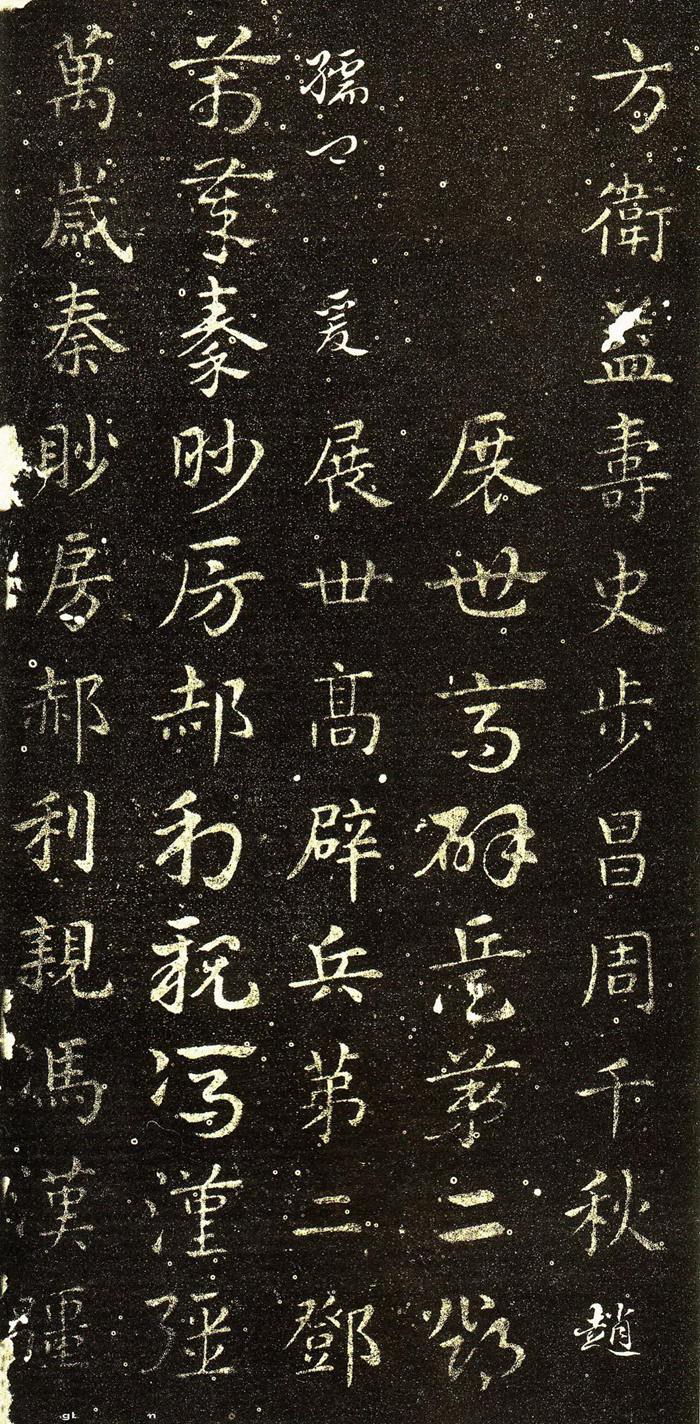 方衛益壽史步昌周千秋趙
展世高辟兵第二鄧
孺卿爰展世高辟兵第二鄧
萬歲秦眇房郝利親馮漢彊
萬歲秦眇房郝利親馮漢彊